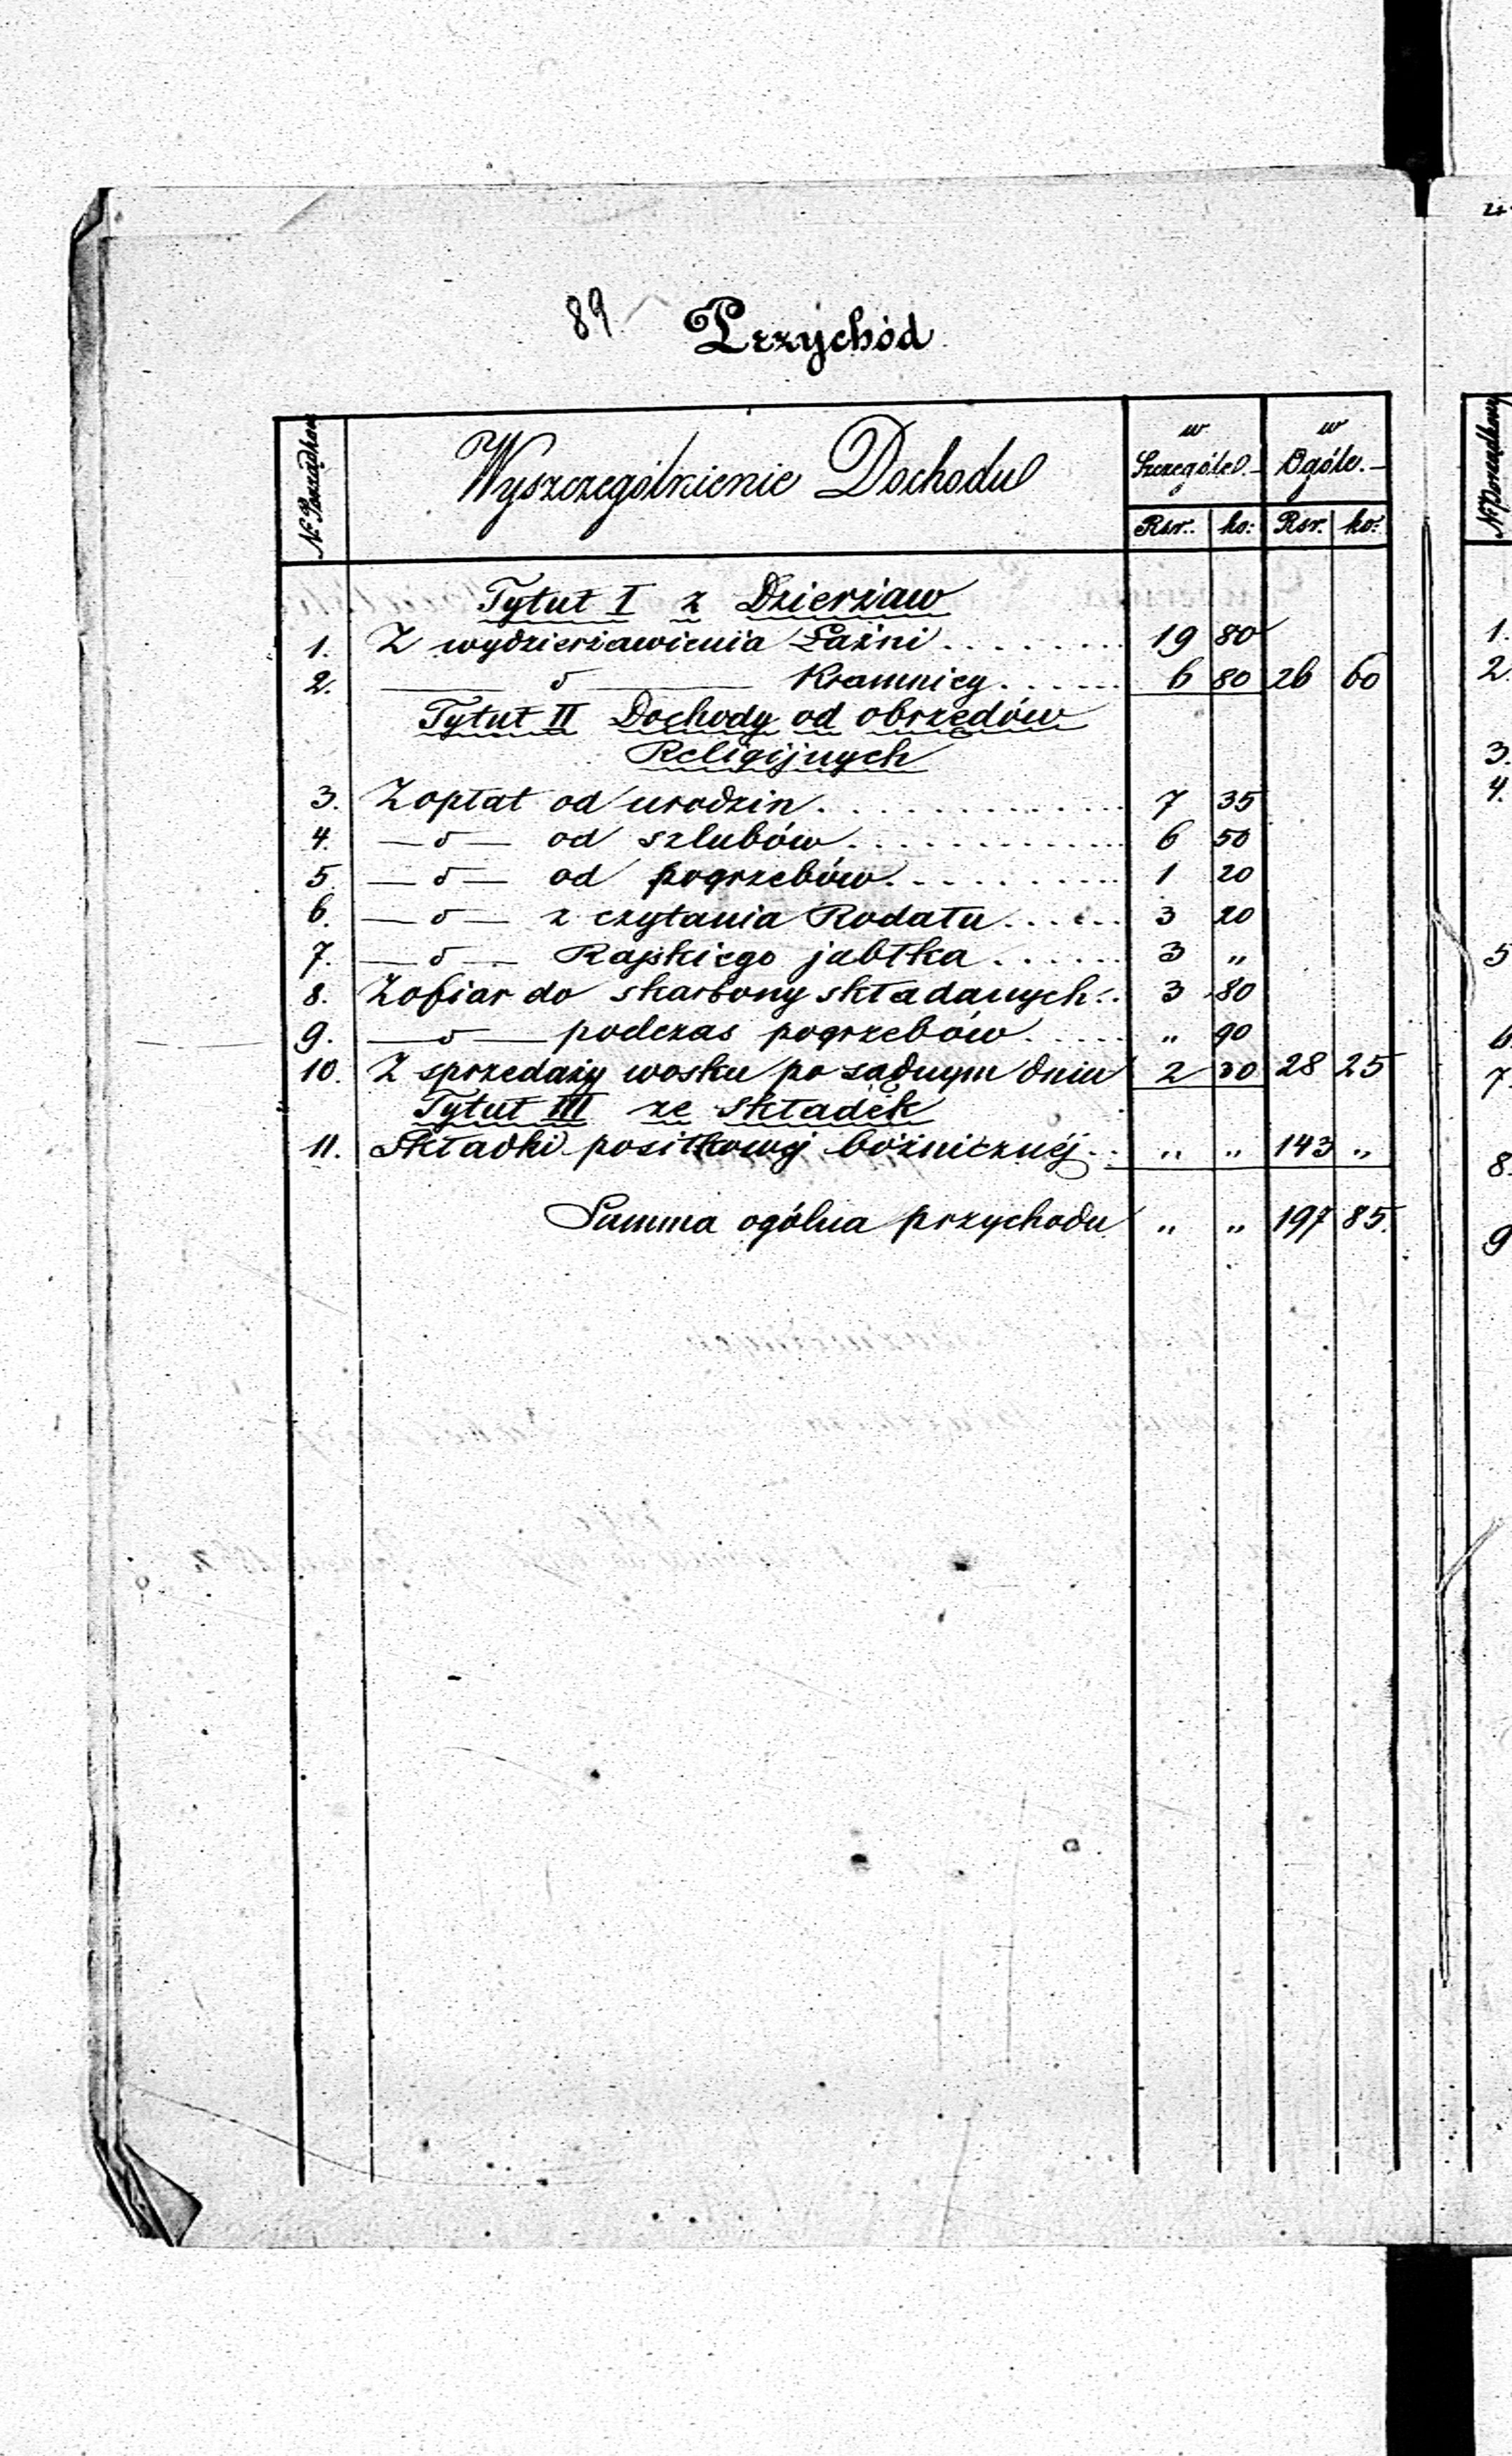 89 Przychód
№ Porządkow. Wyszczególnienie Dochodu w Szczególe.- w Ogóle.-
Rsr. ko: Rsr. ko:
Tytuł I z Dzierżaw
1. Z wydzierżawienia Łaźni . . . . . . . 19 80
2. —— d —— Kramnicy . . . . . 6 80 26 60
Tytuł II Dochody od obrzędów
Religijnych
3. Z opłat od urodzin . . . . . . . . . . . 7 35
4. — d — od szlubów . . . . . . . . . . 6 50
5. — d — od pogrzebów . . . . . . . . 1 20
6. — d — z czytania Rodału . . . . . 3 20
7. — d — Rajskiego jabłka . . . . . . 3 „
8. Z ofiar do skarbony składanych . . 3 80
9. — d — podczas pogrzebów . . . . . „ 90
10. Z sprzedaży wosku po sądnym dniu 2 30 28 25
Tytuł III ze składek
11. Składki posiłkowej bóżnicznéj . . „ „ 143 „
Summa ogólna przychodu „ „ 197 85.
№ Porządkowy
1.
2.
3.
4.
5
6
7
8.
9